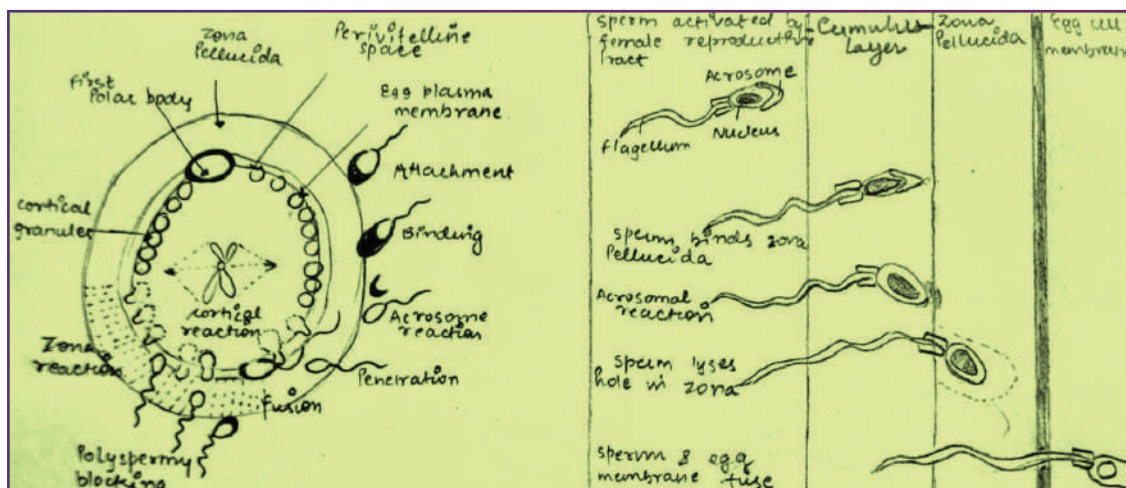 Zona
Pellucida
Perivitelline
space
First
Polar body
Egg plasma
membrane
Attachment
cortical
granules
Binding
cortical
reaction
Acrosome
reaction
Zona
reaction
Penetration
fusion
Polyspermy
blocking
sperm activated by
female reproductive
tract
Cumulus
Layer
Zona
Pellucida
Egg cell
membrane
Acrosome
Nucleus
Flagellum
Sperm binds zona
Pellucida
Acrosomal
reaction
Sperm lyses
hole in zona
sperm & egg
membrane fuse